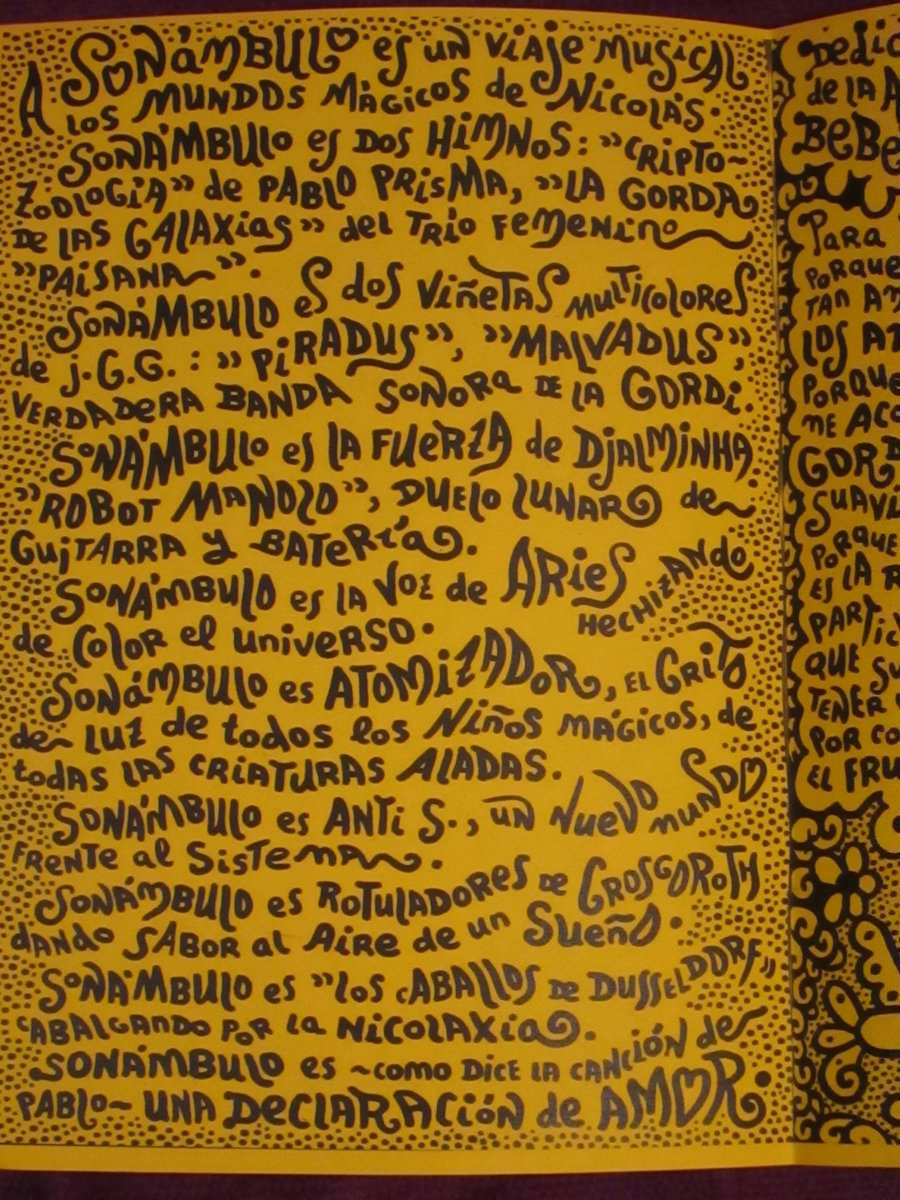 SONÁMBULO es un VIAJE MUSICAL
A LOS MUNDOS MÁGICOS de NICOLÁS.
SONÁMBULO es DOS HIMNOS: "CRIPTO-
ZOOLOGÍA" de PABLO PRISMA, "LA GORDA
DE LAS GALAXIAS" del TRIO FEMENINO
"PAISANA".
SONÁMBULO ES dos VIÑETAS MULTICOLORES
de J.G.G.: "PIRADUS", "MALVADUS",
VERDADERA BANDA SONORA DE LA GORDI.
SONÁMBULO es LA FUERZA de DJALMINHA
"ROBOT MANOLO", DUELO LUNAR de
GUITARRA Y BATERÍA.
SONÁMBULO es LA VOZ de ARIES HECHIZANDO
de COLOR el UNIVERSO.
SONÁMBULO es ATOMIZADOR, EL GRITO
de LUZ de todos los NIÑOS MÁGICOS, de
todas LAS CRIATURAS ALADAS.
SONÁMBULO es ANTI S., UN NUEVO MUNDO
FRENTE al SISTEMA.
SONÁMBULO es ROTULADORES DE GROSGOROTH
DANDO SABOR al AIRE de un SUEÑO.
SONÁMBULO es "LOS CABALLOS DE DUSSELDORF"
CABALGANDO POR LA NICOLAXIA.
SONÁMBULO es ~COMO DICE LA CANCIÓN de
PABLO~ UNA DECLARACIÓN de AMOR.
de LA
Para
PORQUE
TAN
LOS
PORQUE
ME
GORD
SUAVE
PORQUE
ES LA
PARTIC
QUE
TENER
POR CO
EL FRU